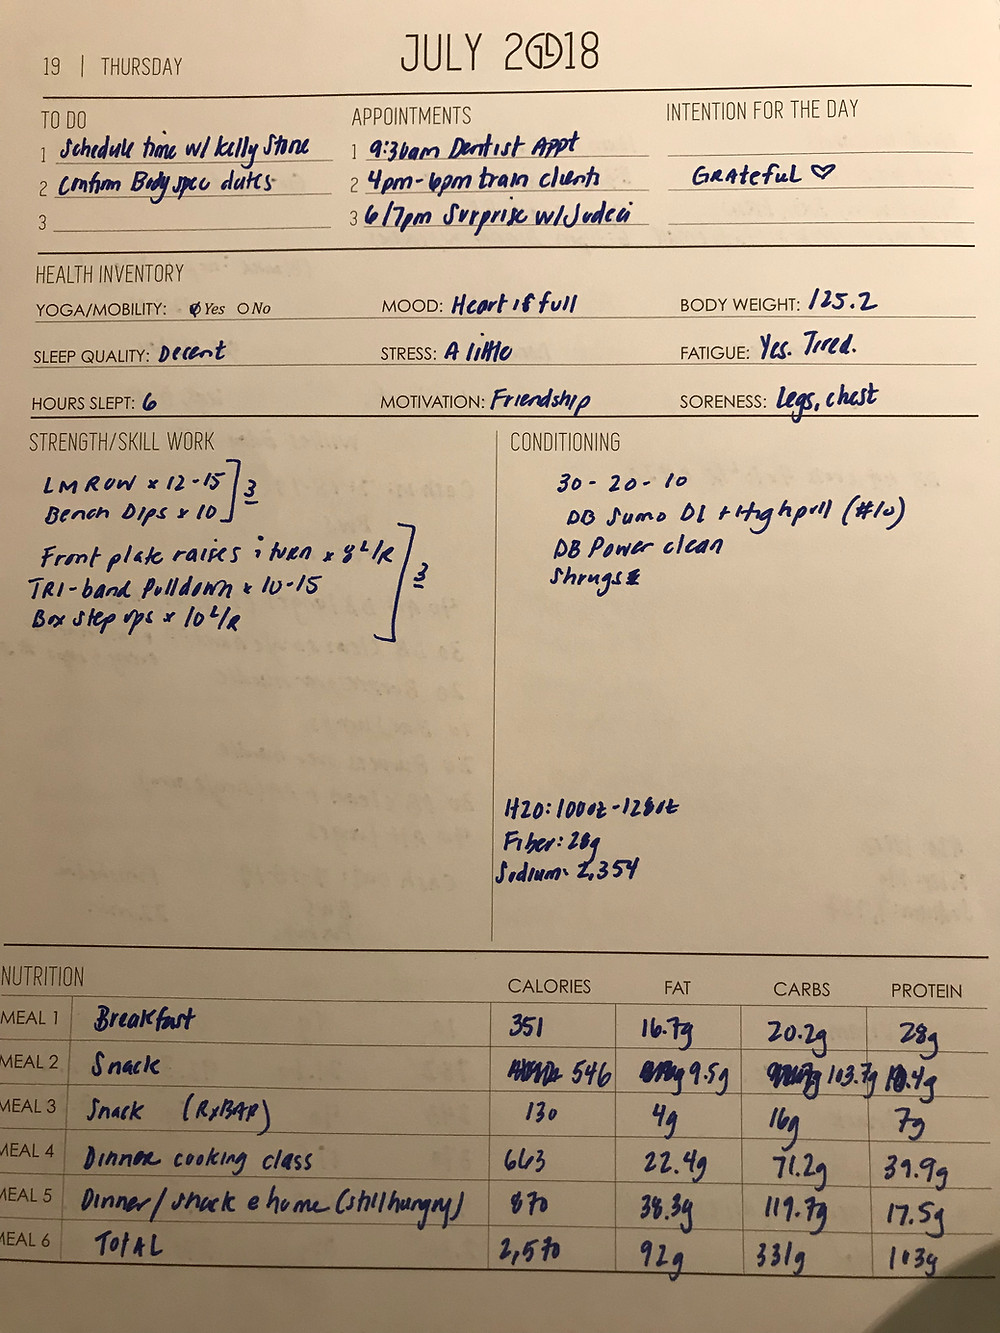 JULY 2018
19 | THURSDAY
TO DO
1 Schedule time w/ Kelly Stone
2 Confirm Bodyspec dates
3
APPOINTMENTS
1 9:30am Dentist Appt
2 4pm-6pm train clients
3 6/7pm Surprise w/ Judeci
INTENTION FOR THE DAY
GRAteful ♡
HEALTH INVENTORY
YOGA/MOBILITY: Yes No MOOD: Heart is full BODY WEIGHT: 125.2
SLEEP QUALITY: Decent STRESS: A little FATIGUE: Yes. Tired.
HOURS SLEPT: 6 MOTIVATION: Friendship SORENESS: Legs, chest
STRENGTH/SKILL WORK
LM ROW x 12-15 ] 3
Bench Dips x 10
Front plate raises i turn x 8 L/R ] 3
TRI-band Pulldown x 10-15
Box step ups x 10 L/R
CONDITIONING
30-20-10
DB Sumo DL + Highpull (#10)
DB Power clean
Shrugs
H2O: 100oz-128oz
Fiber: 28g
Sodium: 2,354
NUTRITION CALORIES FAT CARBS PROTEIN
MEAL 1 Breakfast 351 16.7g 20.2g 28g
MEAL 2 Snack 546 9.5g 103.7g 10.4g
MEAL 3 Snack (RxBAR) 130 4g 16g 7g
MEAL 4 Dinner cooking class 663 22.4g 71.2g 39.9g
MEAL 5 Dinner/snack @ home (still hungry) 870 38.3g 119.7g 17.5g
MEAL 6 TOTAL 2,570 92g 331g 103g